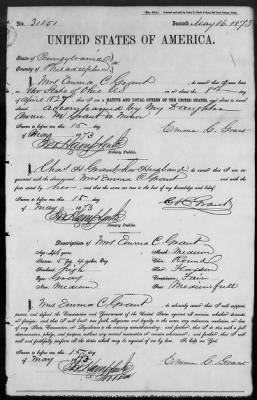 No. 31151 Issued May 16 1873
UNITED STATES OF AMERICA.
State of Pennsylvania
County of Philadelphia
I, Mrs Emma C. Grant, do swear that I was born
in the State of Ohio on the 8th day
of April 1827, that I am a NATIVE AND LOYAL CITIZEN OF THE UNITED STATES, and about to
accompanied by my Daughter
Annie M. Grant a minor
Sworn to before me this 15 day Emma C. Grant
of May 1873
Notary Public.
I, Chas H Grant her Husband, do swear that I am ac-
quainted with the above-named Mrs Emma C Grant and with the facts
stated by her, and that the same are true to the best of my knowledge and belief.
Sworn to before me this 15 day
of May 1873 C H Grant
Notary Public.
Description of Mrs Emma C. Grant
Age: 46 years Mouth: Medium
Stature: 5 feet inches, Eng. Chin: Round
Forehead: High Hair:
Eyes: Gray Complexion: Fair
Nose: Medium Face: Medium full
I, Mrs Emma C. Grant, do solemnly swear that I will support,
protect, and defend the Constitution and Government of the United States against all enemies, whether domestic
or foreign; and that I will bear true faith, allegiance and loyalty to the same, any ordinance, resolution, or law
of any State, Convention, or Legislature to the contrary notwithstanding; and further, that I do this with a full
determination, pledge, and purpose, without any mental reservation or evasion whatsoever; and further, that I will
well and faithfully perform all the duties which may be required of me by law: So help me God.
Sworn to before me this 15 day
of May 1873 Emma C. Grant